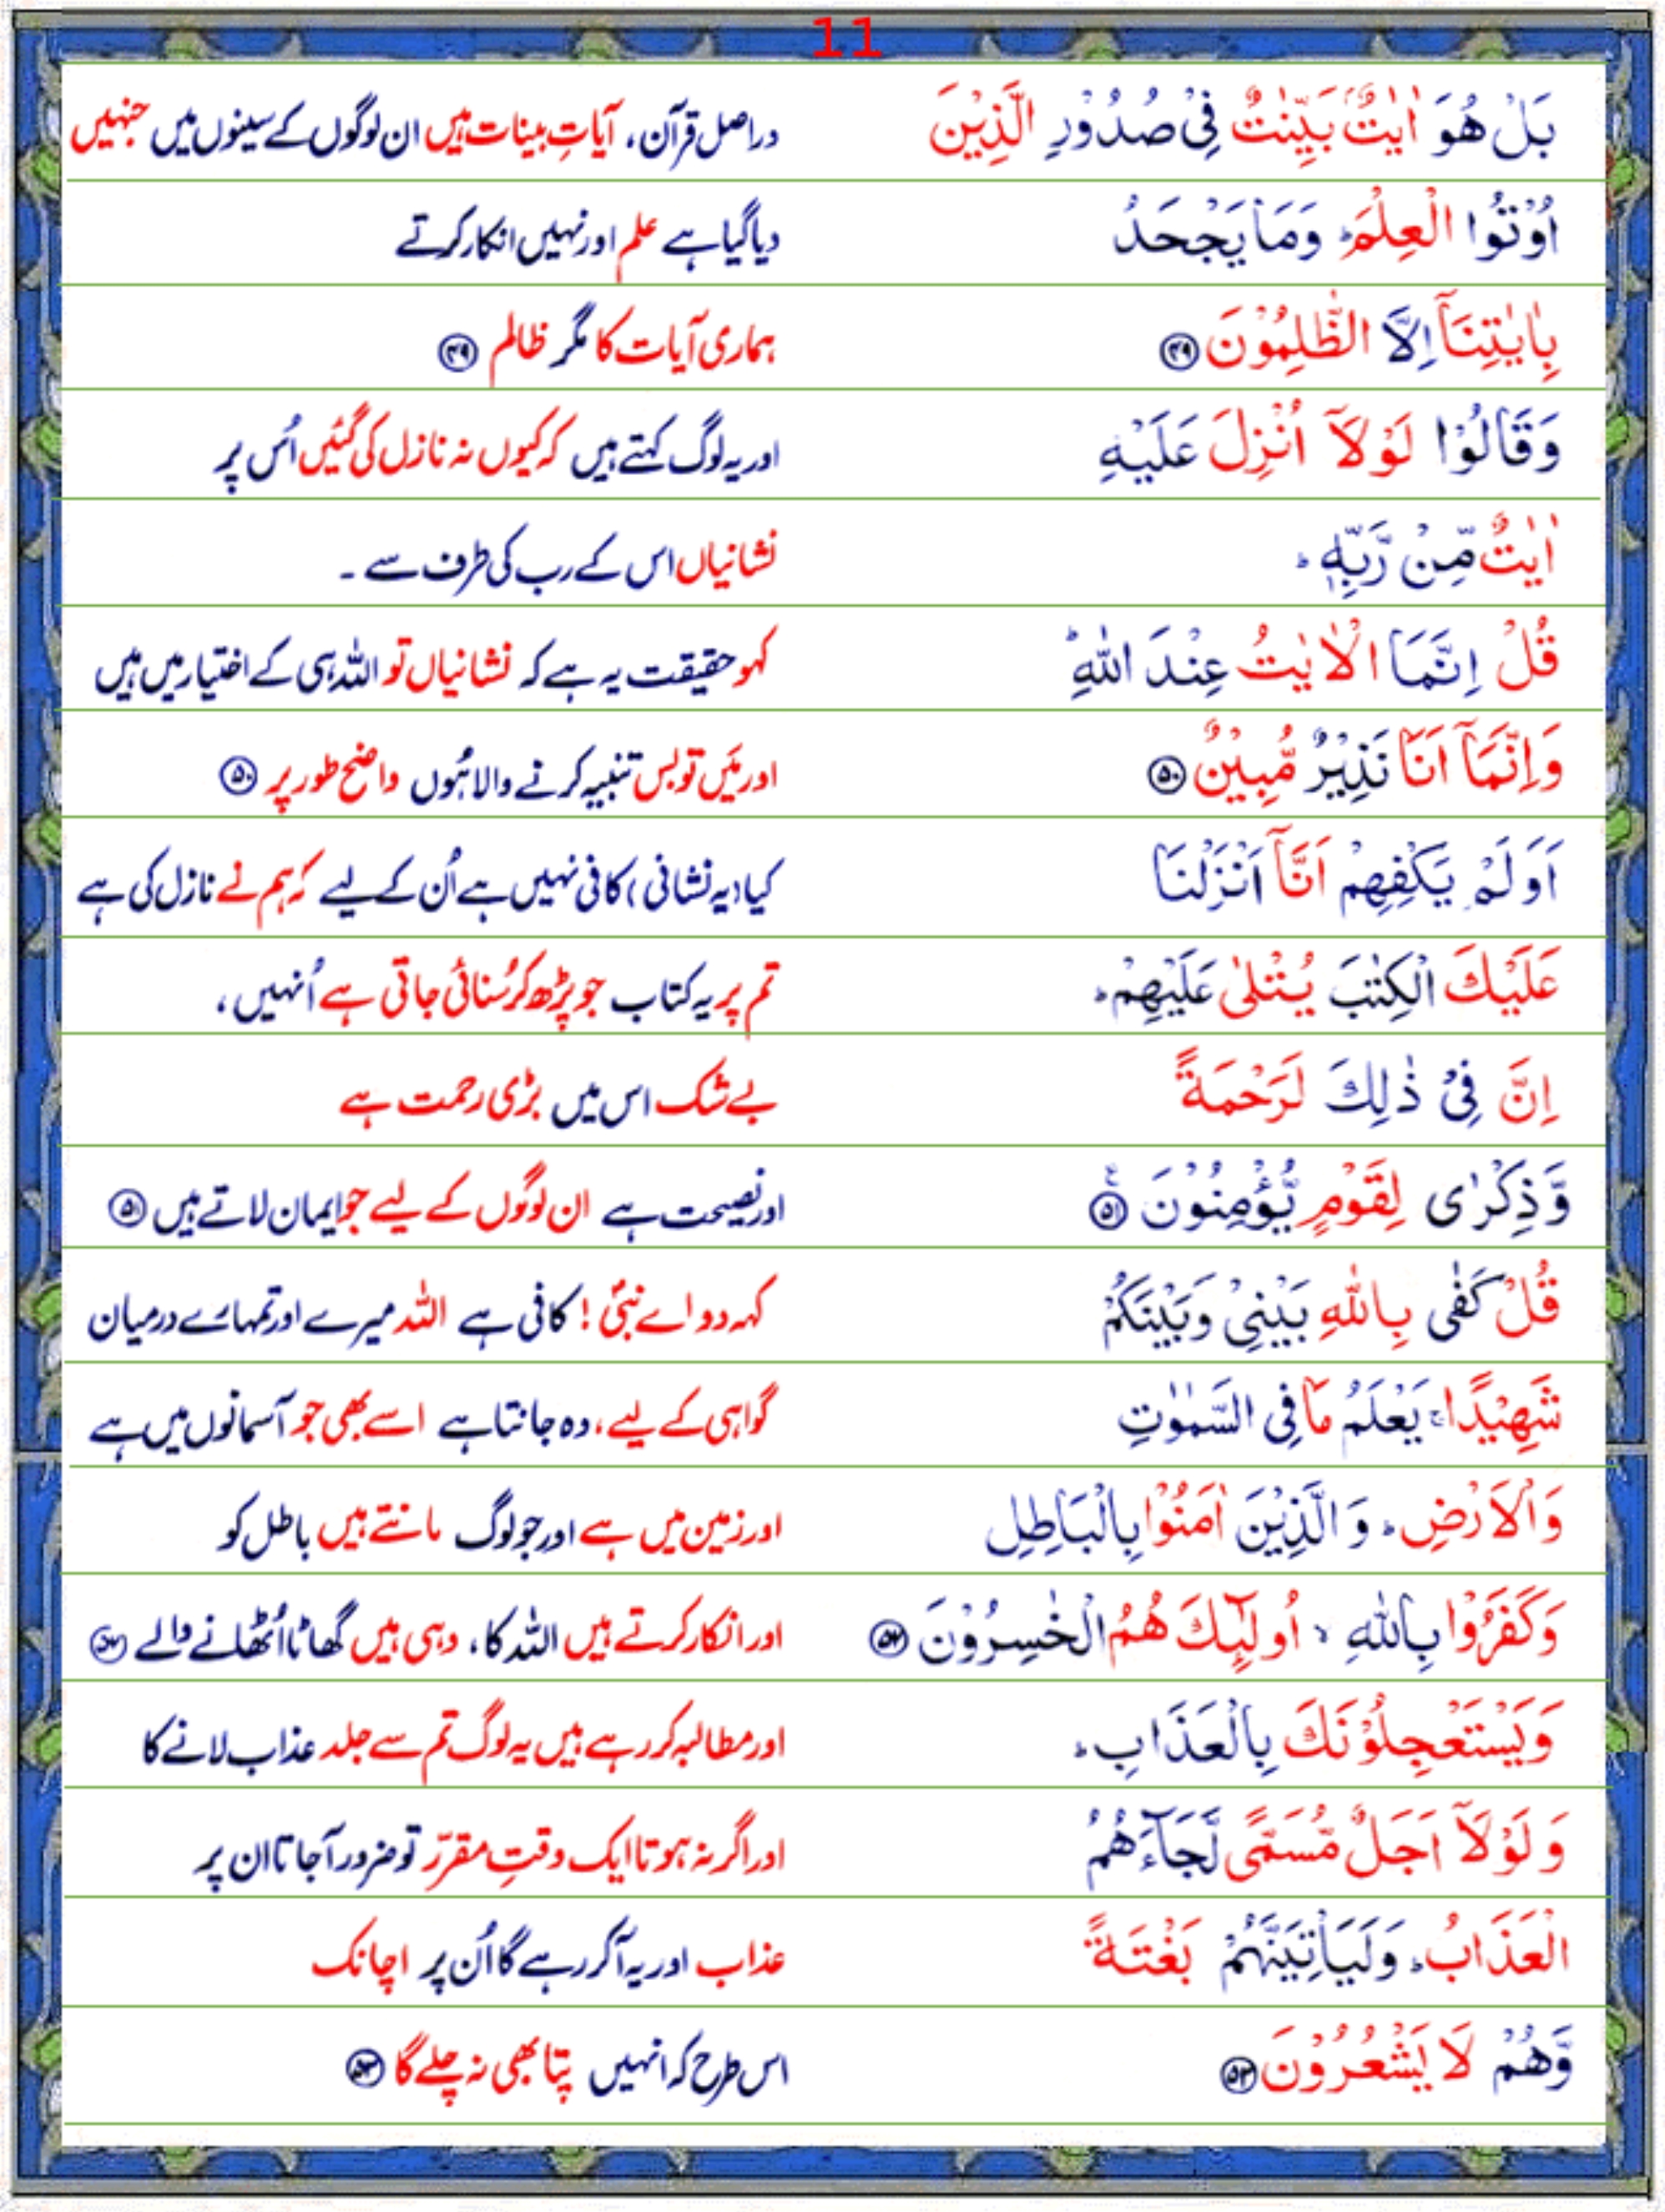 11
بَلْ هُوَ اٰيٰتٌۢ بَيِّنٰتٌ فِيْ صُدُوْرِ الَّذِيْنَ دراصل قرآن، آیاتِ بینات ہیں ان لوگوں کے سینوں میں جنہیں
اُوْتُوا الْعِلْمَ ؕ وَمَا يَجْحَدُ دیا گیا ہے علم اور نہیں انکار کرتے
بِاٰيٰتِنَاۤ اِلَّا الظّٰلِمُوْنَ ۝۴۹ ہماری آیات کا مگر ظالم ۝۴۹
وَقَالُوْا لَوْلَاۤ اُنْزِلَ عَلَيْهِ اور یہ لوگ کہتے ہیں کہ کیوں نہ نازل کی گئیں اُس پر
اٰيٰتٌ مِّنْ رَّبِّهٖ ؕ نشانیاں اس کے رب کی طرف سے ۔
قُلْ اِنَّمَا الْاٰيٰتُ عِنْدَ اللّٰهِ ؕ کہو حقیقت یہ ہے کہ نشانیاں تو اللہ ہی کے اختیار میں ہیں
وَاِنَّمَاۤ اَنَا نَذِيْرٌ مُّبِيْنٌ ۝۵۰ اور مَیں تو بس تنبیہ کرنے والا ہُوں واضح طور پر ۝۵۰
اَوَلَمْ يَكْفِهِمْ اَنَّاۤ اَنْزَلْنَا کیا (یہ نشانی) کافی نہیں ہے اُن کے لیے کہ ہم نے نازل کی ہے
عَلَيْكَ الْكِتٰبَ يُتْلٰى عَلَيْهِمْ ؕ تم پر یہ کتاب جو پڑھ کر سُنائی جاتی ہے اُنہیں،
اِنَّ فِيْ ذٰلِكَ لَرَحْمَةً بے شک اس میں بڑی رحمت ہے
وَّذِكْرٰى لِقَوْمٍ يُّؤْمِنُوْنَ ۝۵۱ اور نصیحت ہے ان لوگوں کے لیے جو ایمان لاتے ہیں ۝۵۱
قُلْ كَفٰى بِاللّٰهِ بَيْنِيْ وَبَيْنَكُمْ کہہ دو اے نبیؐ! کافی ہے اللہ میرے اور تمہارے درمیان
شَهِيْدًا ۚ يَعْلَمُ مَا فِي السَّمٰوٰتِ گواہی کے لیے، وہ جانتا ہے اسے بھی جو آسمانوں میں ہے
وَالْاَرْضِ ؕ وَ الَّذِيْنَ اٰمَنُوْا بِالْبَاطِلِ اور زمین میں ہے اور جو لوگ مانتے ہیں باطل کو
وَكَفَرُوْا بِاللّٰهِ ۙ اُولٰٓئِكَ هُمُ الْخٰسِرُوْنَ ۝۵۲ اور انکار کرتے ہیں اللہ کا، وہی ہیں گھاٹا اُٹھانے والے ۝۵۲
وَيَسْتَعْجِلُوْنَكَ بِالْعَذَابِ ؕ اور مطالبہ کر رہے ہیں یہ لوگ تم سے جلد عذاب لانے کا
وَ لَوْلَاۤ اَجَلٌ مُّسَمًّى لَّجَآءَهُمُ اور اگر نہ ہوتا ایک وقتِ مقرّر تو ضرور آجاتا ان پر
الْعَذَابُ ؕ وَلَيَاْتِيَنَّهُمْ بَغْتَةً عذاب اور یہ آکر رہے گا اُن پر اچانک
وَّهُمْ لَا يَشْعُرُوْنَ ۝۵۳ اس طرح کہ انہیں پتا بھی نہ چلے گا ۝۵۳